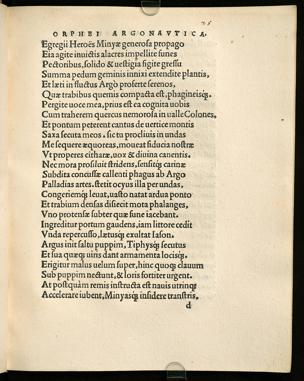 ORPHEI ARGONAVTICA.
Egregii Heroës Minyæ generosa propago
Eia agite inuictis alacres impellite funes
Pectoribus, solido & uestigia figite gressu
Summa pedum geminis innixi extendite plantis,
Et læti in fluctus Argò proferte serenos,
Quæ trabibus quernis compacta est, phagineisq;.
Pergite uoce mea, prius est ea cognita uobis
Cum traherem quercus nemorosa in ualle Colones,
Et pontum peterent cantus de uertice montis
Saxa secuta meos. sic tu procliuis in undas
Me sequere æquoreas, moueat fiducia nostræ
Vt properes citharæ, uox & diuina canentis.
Nec mora prosiluit stridens, sensitq; carinæ
Subdita concissæ callenti phagus ab Argo
Palladias artes. stetit ocyus illa per undas,
Congeriemq; leuat, uasto natat ardua ponto
Et trabium densas disiecit mota phalanges,
Vno protensæ subter quæ fune iacebant.
Ingreditur portum gaudens, iam littore cedit
Vnda repercusso, lætusq; exultat Iason.
Argus init saltu puppim, Tiphysq; secutus
Et sua quæq; uiris dant armamenta locisq;.
Erigitur malus uelum super, hinc quoq; clauum
Sub puppim nectunt, & loris fortiter urgent.
At postquàm remis instructa est nauis utrinq;
Accelerare iubent, Minyasq; insidere transtris,
d